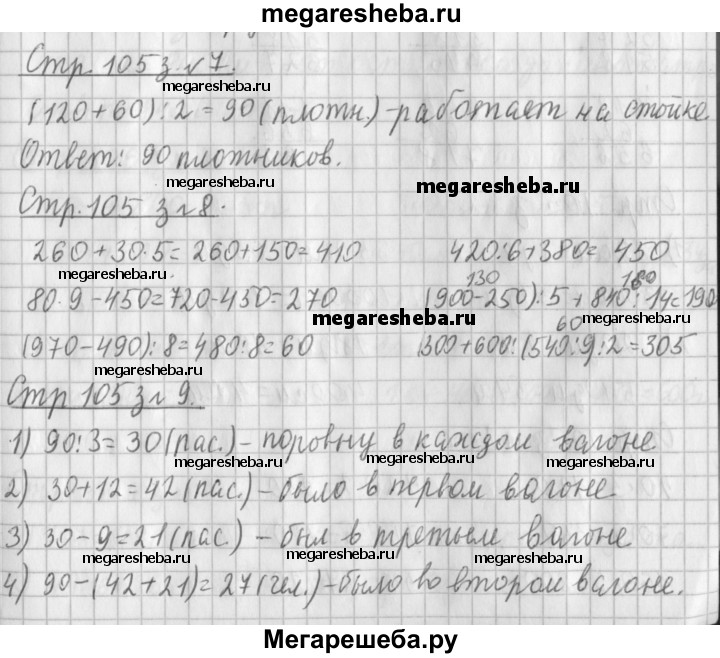 megaresheba.ru
Стр. 105 з.№7.
megaresheba.ru
(120+60):2=90(плотн.)-работает на стойке
Ответ: 90 плотников.
megaresheba.ru
megaresheba.ru
Стр. 105 з№8.
260+30·5=260+150=410 420:6+380=450
megaresheba.ru
130 180
80·9-450=720-450=270 (900-250):5+840:14=190
megaresheba.ru megaresheba.ru
60
(970-490):8=480:8=60 300+600:(540:9):2=305
megaresheba.ru
Стр 105 з№9.
1) 90:3=30(пас.)-поровну в каждом вагоне
megaresheba.ru megaresheba.ru
2) 30+12=42(пас.)-было в первом вагоне
3) 30-9=21(пас.)-был в третьем вагоне
megaresheba.ru megaresheba.ru megaresheba.ru
4) 90-(42+21)=27(чел.)-было во втором вагоне.
Мегарешеба.ру